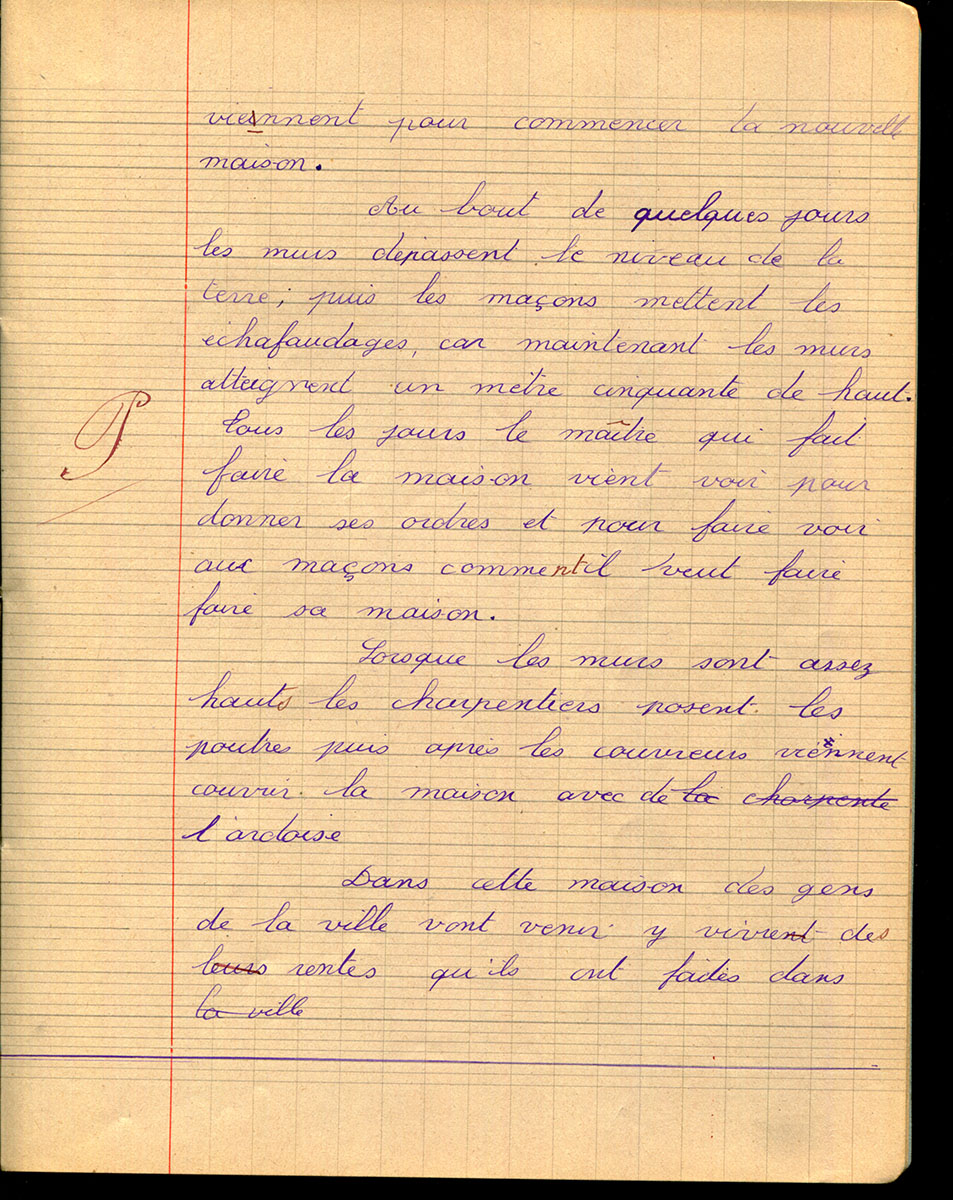 viennent pour commencer la nouvelle
maison.
Au bout de quelques jours
les murs dépassent le niveau de la
terre; puis les maçons mettent les
échafaudages, car maintenant les murs
atteignent un mètre cinquante de haut.
Tous les jours le maître qui fait
P
faire la maison vient voir pour
donner ses ordres et pour faire voir
aux maçons comment il veut faire
faire sa maison.
Lorsque les murs sont assez
hauts les charpentiers posent les
poutres puis après les couvreurs viennent
couvrir la maison avec de la charpente
l'ardoise
Dans cette maison des gens
de la ville vont venir y vivrent des
leurs rentes qu'ils ont faites dans
la ville